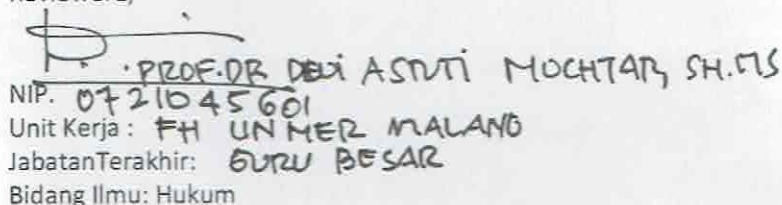 Reviewers,
PROF.DR DEWI ASTUTI MOCHTAR, SH.MS
NIP. 0721045601
Unit Kerja : FH UNMER MALANG
JabatanTerakhir: GURU BESAR
Bidang Ilmu: Hukum